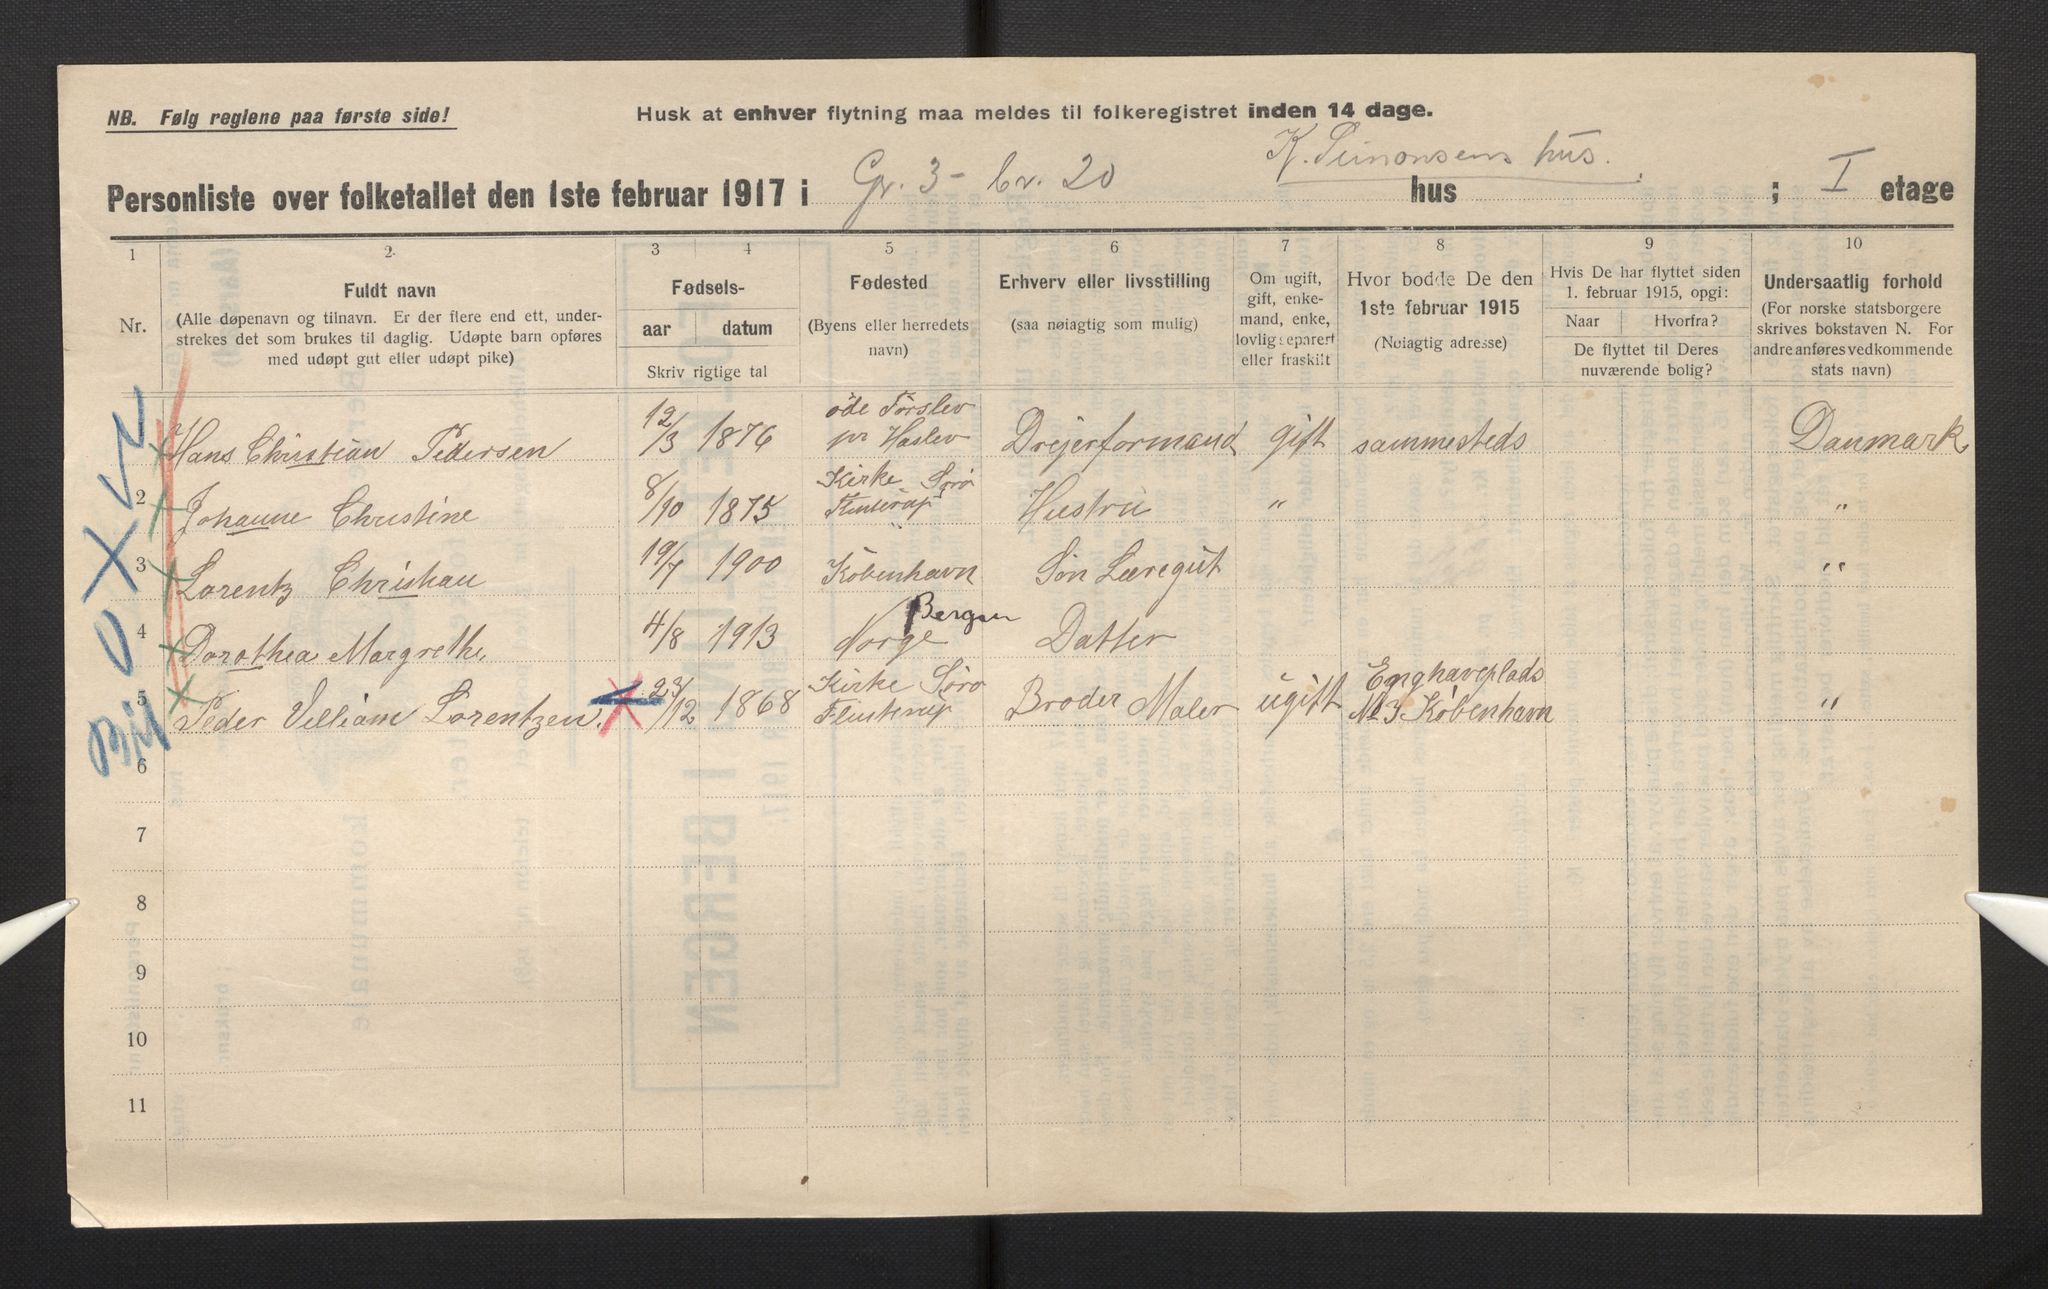 NB. Følg reglene paa første side!
Husk at enhver flytning maa meldes til folkeregistret inden 14 dage.
Personliste over folketallet den 1ste februar 1917 i Gr. 3 - br. 20 K. Simonsens hus. hus ; I etage
1 2. 3 4 5 6 7 8 9 10
Nr.
Fuldt navn
(Alle døpenavn og tilnavn. Er der flere end ett, under-
strekes det som brukes til daglig. Udøpte barn opføres
med udøpt gut eller udøpt pike)
Fødsels-
aar datum
Skriv rigtige tal
Fødested
(Byens eller herredets
navn)
Erhverv eller livsstilling
(saa nøiagtig som mulig)
Om ugift,
gift, enke-
mand, enke,
lovlig separert
eller fraskilt
Hvor bodde De den
1ste februar 1915
(Nøiagtig adresse)
Hvis De har flyttet siden
1. februar 1915, opgi:
Naar Hvorfra?
De flyttet til Deres
nuværende bolig?
Undersaatlig forhold
(For norske statsborgere
skrives bokstaven N. For
andre anføres vedkommende
stats navn)
Hans Christian Pedersen 12/3 1876 öde Förslev pr Haslev Drejerformand gift sammesteds Danmark
2 Johanne Christine 8/10 1875 Kirke Sörö Hustru " "
3 Lorentz Christian 19/7 1900 København Søn Læregut "
4 Dorothea Margrethe 4/8 1913 Norge Bergen Datter
5 Peder Villiam Lorentzen. 23/12 1868 Kirke Sörö Flinterup Broder Maler ugift Enghaveplads No 3. København "
6
7
8
9
10
11